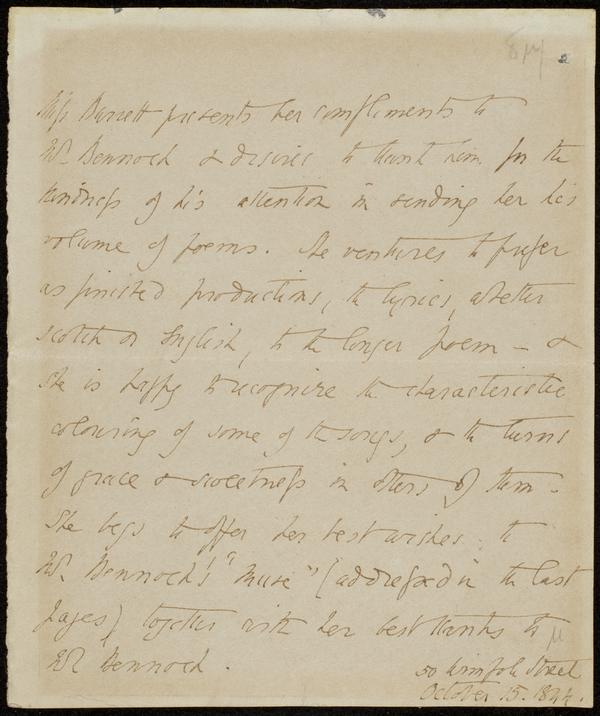 Miss Barrett presents her compliments to
Mr. Bennoch & desires to thank him for the
kindness of his attention in sending her his
volume of poems. She ventures to prefer
as finished productions, the lyrics, whether
scotch or English, to the longer poem - &
she is happy to recognize the characteristic
colouring of some of the songs, & the turns
of grace & sweetness in others of them -
She begs to offer her best wishes to
Mr. Bennoch's "Muse" (addressed in the last
pages) together with her best thanks to
Mr Bennoch.
50 Wimpole Street
October 15. 1844.